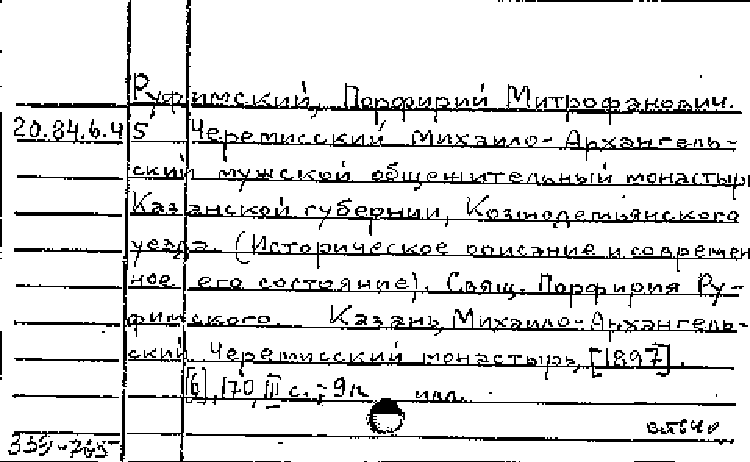 Руфимский, Порфирий Митрофанович.
20.84.6.45 Черемисский Михаило-Архангель-
ский мужской общежительный монастырь
Казанской губернии, Козмодемьянского
уезда. (Историческое описание и современ
ное его состояние). Свящ. Порфирия Ру-
фимского. Казань, Михаило-Архангель-
ский Черемисский монастырь, [1897].
[6], 170, II с.; 9 л. илл.
339-765